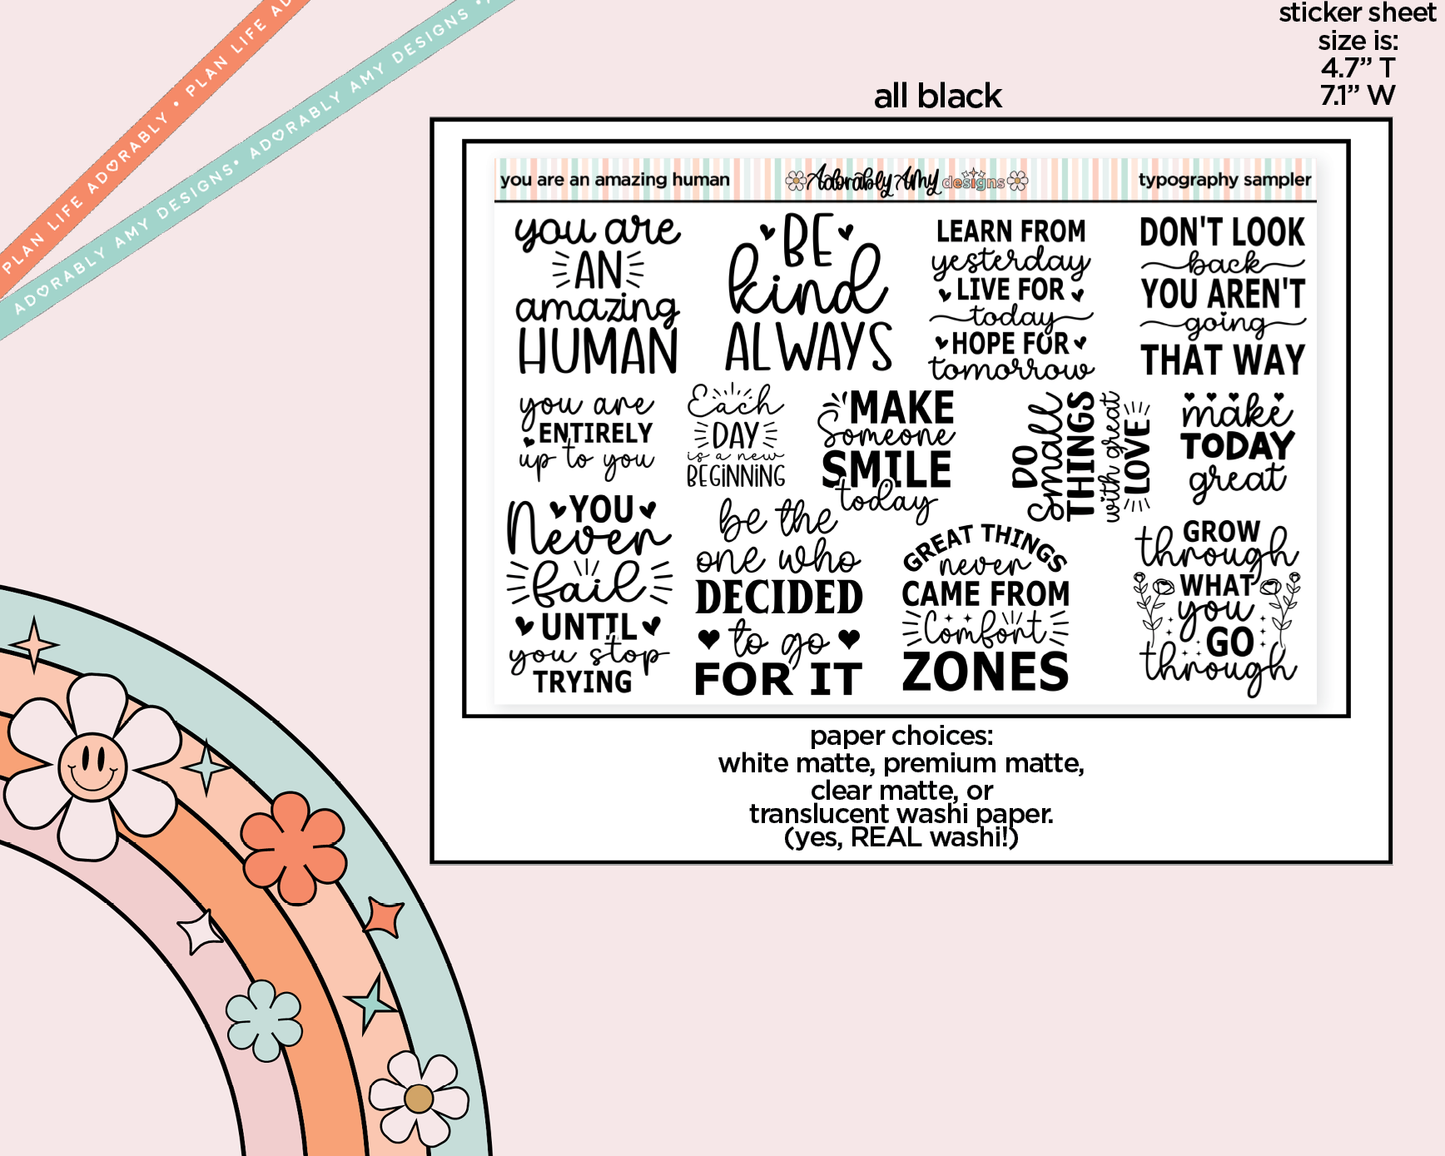 sticker sheet
size is:
4.7” T
7.1” W
PLAN LIFE ADORABLY • PLAN LIFE AD
ADORABLY AMY DESIGNS • ADORABLY AMY DESIGNS •
all black
you are an amazing human
Adorably Amy designs
typography sampler
you are
AN
amazing
HUMAN
BE
kind
ALWAYS
LEARN FROM
yesterday
LIVE FOR
today
HOPE FOR
tomorrow
DON'T LOOK
back
YOU AREN'T
going
THAT WAY
you are
ENTIRELY
up to you
Each
DAY
is a new
BEGINNING
MAKE
Someone
SMILE
today
DO
Small
THINGS
with great
LOVE
make
TODAY
great
YOU
Never
fail
UNTIL
you stop
TRYING
be the
one who
DECIDED
to go
FOR IT
GREAT THINGS
never
CAME FROM
Comfort
ZONES
GROW
through
WHAT
you
GO
through
paper choices:
white matte, premium matte,
clear matte, or
translucent washi paper.
(yes, REAL washi!)